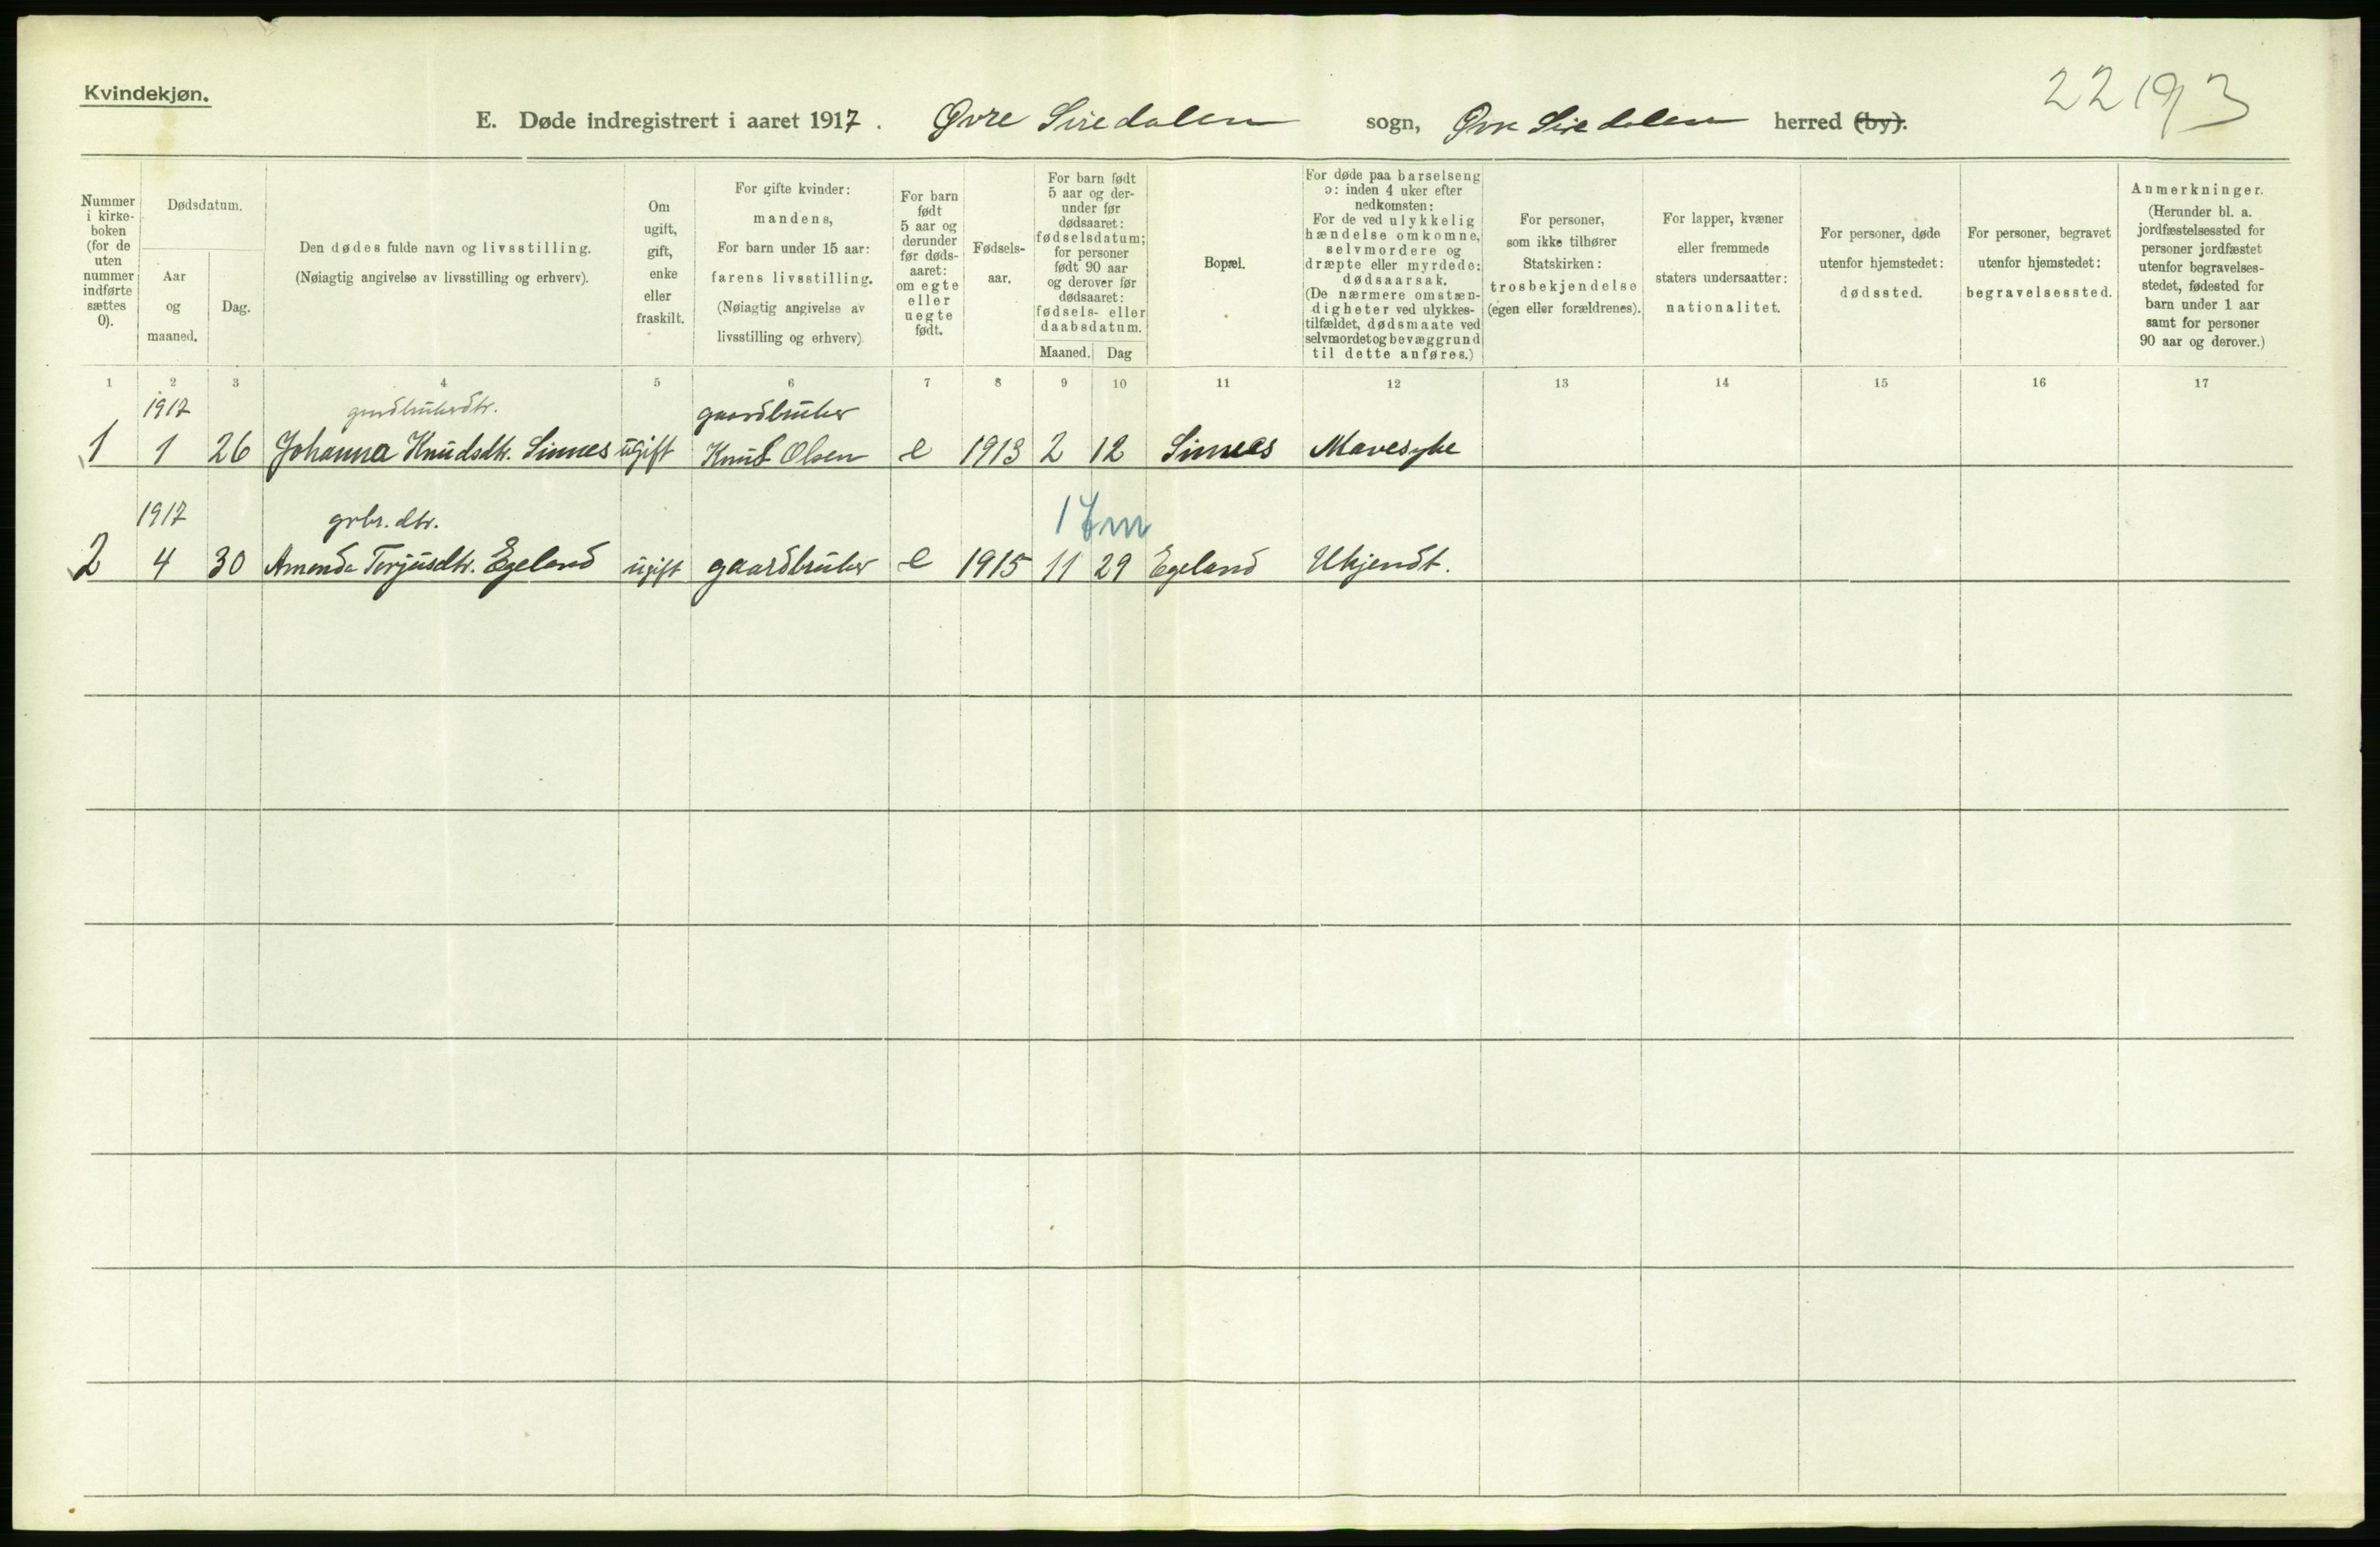 Kvindekjøn.
22193
E. Døde indregistrert i aaret 1917. Øvre Siredalen sogn, Øvre Siredalen herred (by).
Nummer i kirke-boken (for de uten nummer indførte sættes 0).
Dødsdatum.
Aar og maaned.
Dag.
Den dødes fulde navn og livsstilling.
(Nøiagtig angivelse av livsstilling og erhverv).
Om ugift, gift, enke eller fraskilt.
For gifte kvinder:
mandens,
For barn under 15 aar:
farens livsstilling.
(Nøiagtig angivelse av
livsstilling og erhverv)
For barn født 5 aar og derunder før døds-aaret: om egte eller uegte født.
Fødsels-aar.
For barn født 5 aar og der-under før dødsaaret: fødselsdatum; for personer født 90 aar og derover før dødsaaret: fødsels- eller daabsdatum.
Maaned. Dag
Bopæl.
For døde paa barselseng ɔ: inden 4 uker efter nedkomsten: For de ved ulykkelig hændelse omkomne, selvmordere og dræpte eller myrdede: dødsaarsak. (De nærmere omstæn-digheter ved ulykkes-tilfældet, dødsmaate ved selvmordet og bevæggrund til dette anføres.)
For personer, som ikke tilhører Statskirken: trosbekjendelse (egen eller forældrenes).
For lapper, kvæner eller fremmede staters undersaatter: nationalitet.
For personer, døde utenfor hjemstedet: dødssted.
For personer, begravet utenfor hjemstedet: begravelsessted.
Anmerkninger.
(Herunder bl. a. jordfæstelsessted for personer jordfæstet utenfor begravelses-stedet, fødested for barn under 1 aar samt for personer 90 aar og derover.)
1 2 3 4 5 6 7 8 9 10 11 12 13 14 15 16 17
1917 gaardbrukerdtr. gaardbruker
1 1 26 Johanna Knudsdtr. Sinnes ugift Knud Olsen e 1913 2 12 Sinnes Mavesyke
1917 grbr. dtr. 17m
2 4 30 Amanda Terjusdtr. Egeland ugift gaardbruker e 1915 11 29 Egeland Ukjendt.